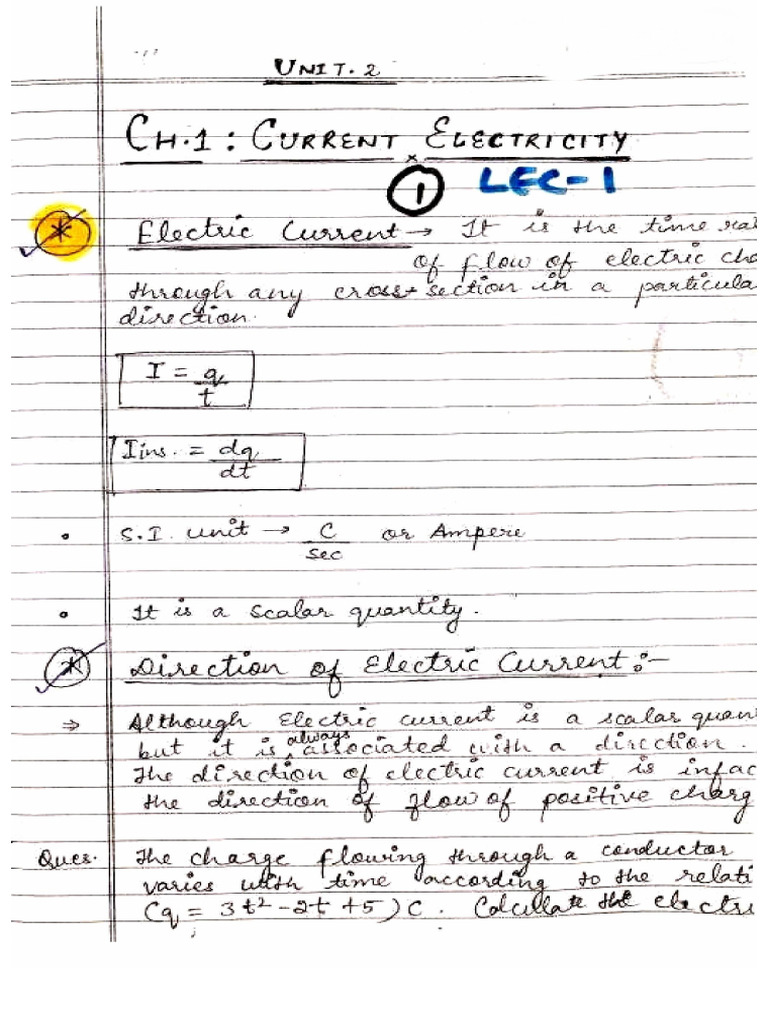 UNIT. 2
CH.1 : CURRENT ELECTRICITY
1 LEC-1
* Electric Current → It is the time ra
of flow of electric cha
through any cross section in a particula
direction.
I = q/t
Iins. = dq/dt
• S.I. unit → C/sec or Ampere
• It is a scalar quantity.
* Direction of Electric Current :-
⇒ Although Electric current is a scalar quan
but it is always associated with a direction.
The direction of electric current is infac
the direction of flow of positive charg
Ques. The charge flowing through a conductor
varies with time according to the relati
(q = 3t² - 2t + 5) C. Calculate the electri